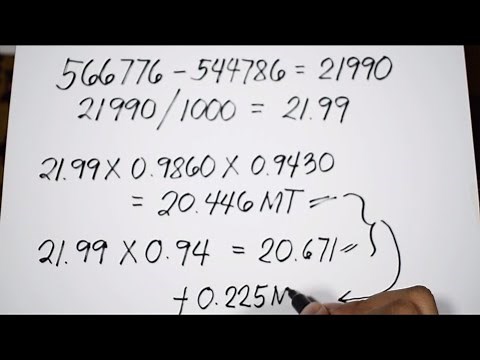 566776 - 544786 = 21990
21990/1000 = 21.99
21.99 X 0.9860 X 0.9430
= 20.446 MT
21.99 X 0.94 = 20.671
+ 0.225 M